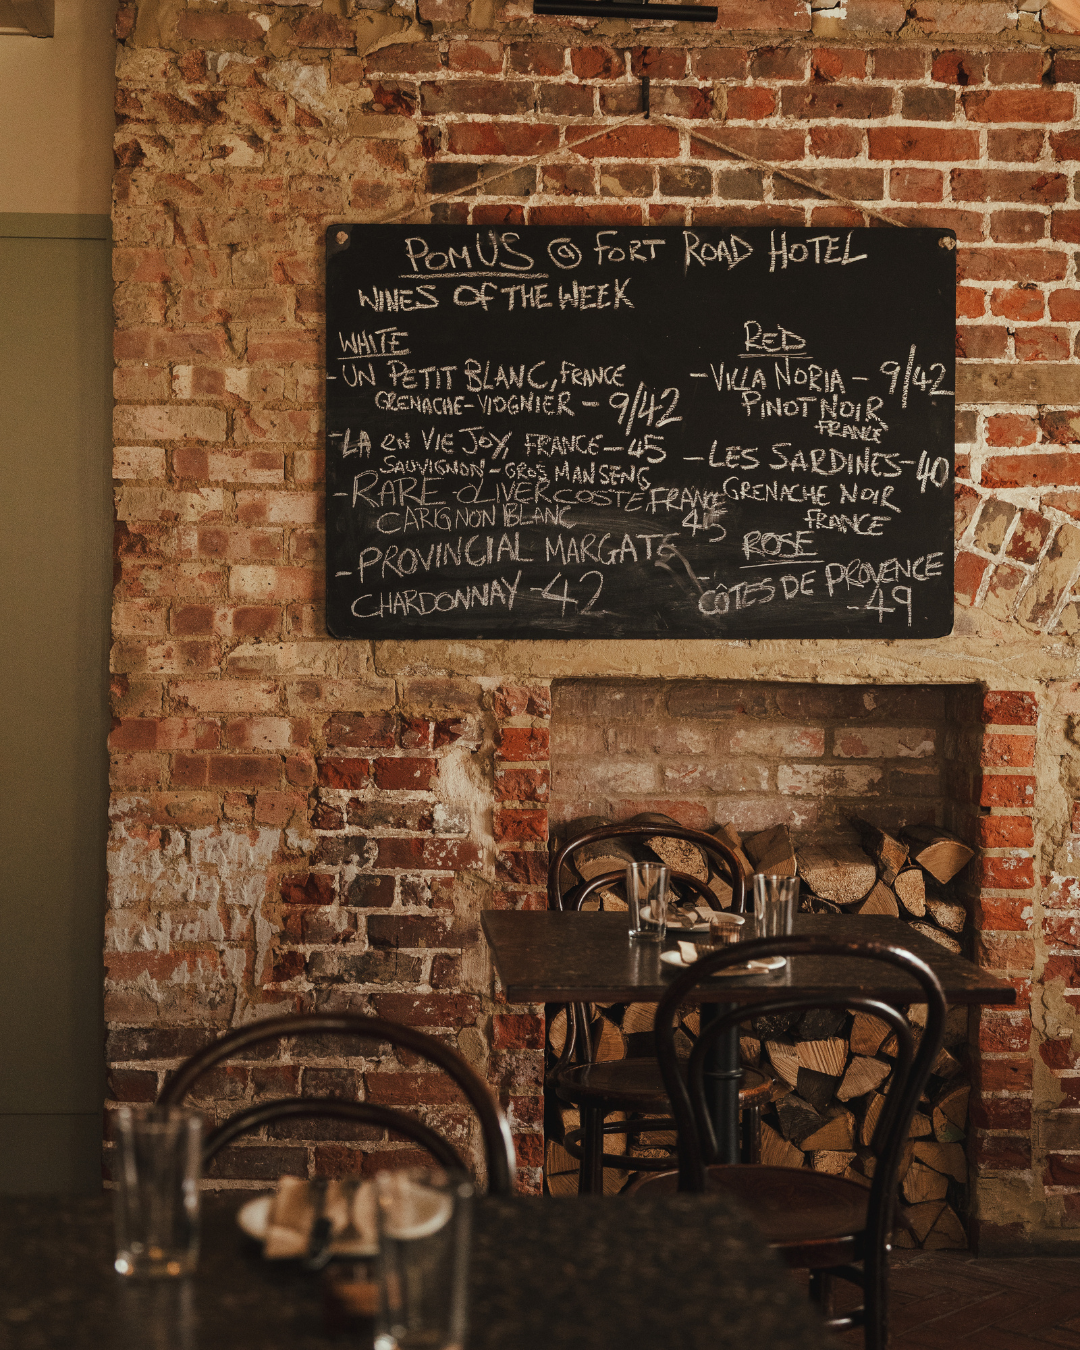 POMUS @ FORT ROAD HOTEL
WINES OF THE WEEK
WHITE
-UN PETIT BLANC, FRANCE
GRENACHE-VIOGNIER - 9/42
-LA EN VIE JOY, FRANCE-45
SAUVIGNON-GROS MANSENG
-RARE -OLIVER COSTE, FRANCE
CARIGNON BLANC 45
-PROVINCIAL MARGATE
CHARDONNAY -42
RED
-VILLA NORIA - 9/42
PINOT NOIR
FRANCE
-LES SARDINES-40
GRENACHE NOIR
FRANCE
ROSE
-CÔTES DE PROVENCE
-49